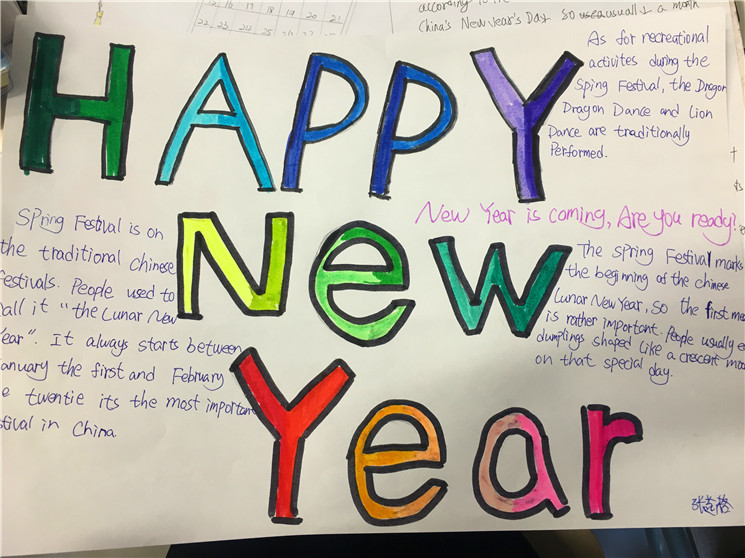 according to the
China's New Year's Day. So we usually a month
15 16 17 18 19 20 21
22 23 24
HAPPY
New
Year
As for recreational
activites during the
Sping Festival, the Dragon
Dragon Dance and Lion
Dance are traditionally
Performed.
New Year is coming, Are you ready!
Spring Festival is on
the traditional chinese
festivals. People used to
call it "the Lunar New
Year". It always starts between
January the first and February
e twentie its the most important
stival in China.
The Spring Festival marks
the beginning of the chinese
Lunar New Year, so the first me
is rather important. People usually e
dumplings shaped like a crescent moo
on that special day.